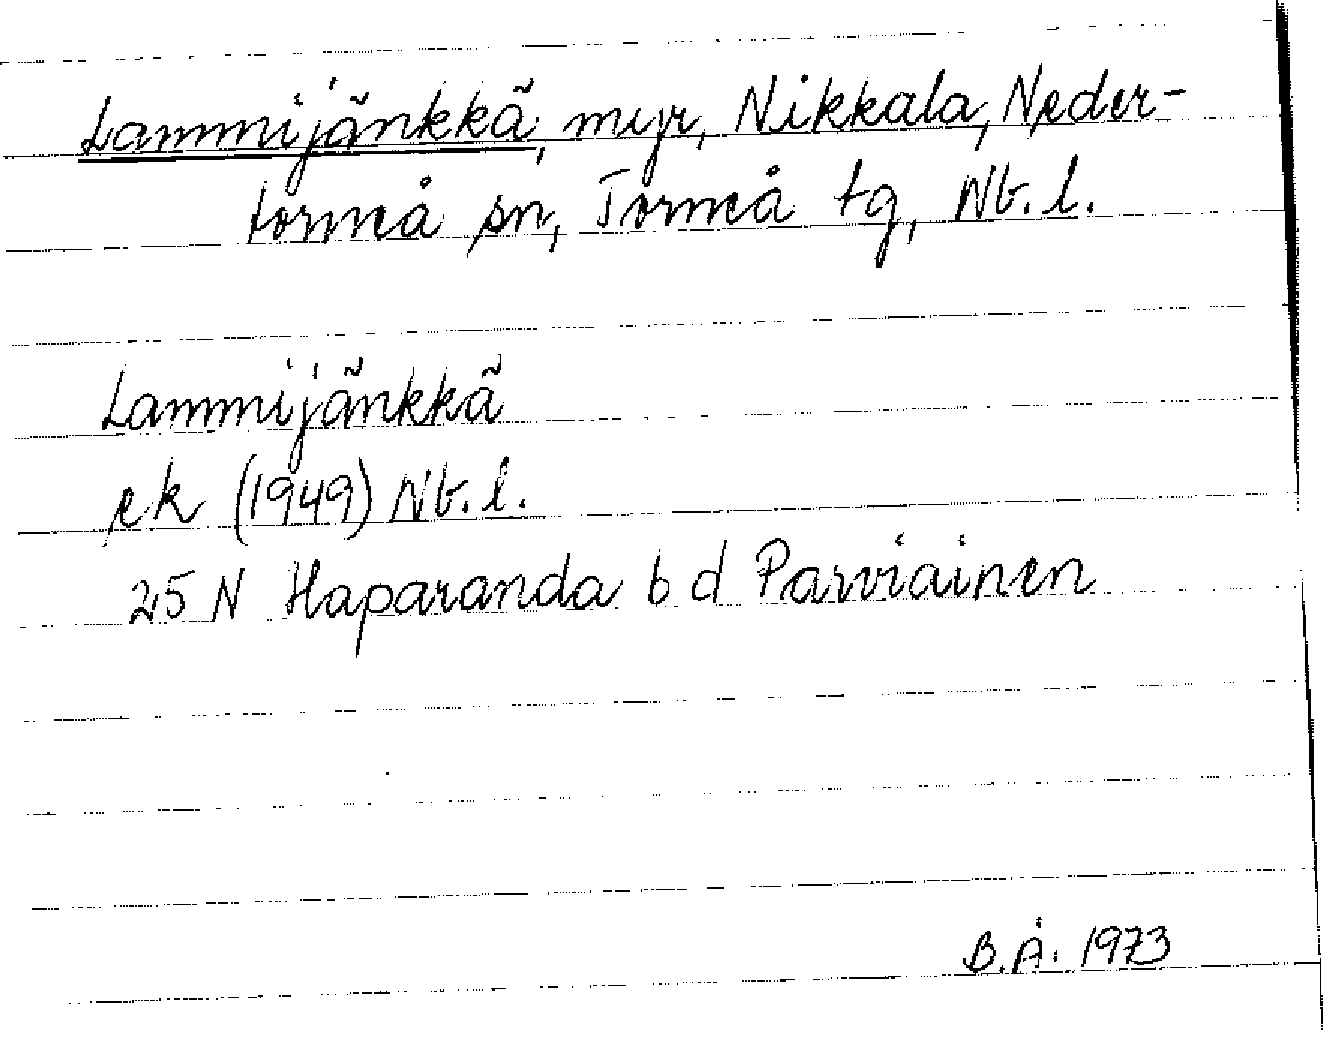 Lammijänkkä, myr, Nikkala, Neder-
torneå sn, Torneå tg, Nb. l.
Lammijänkkä
ek (1949) Nb. l.
25 N Haparanda b d Parviainen
B.Å. 1973